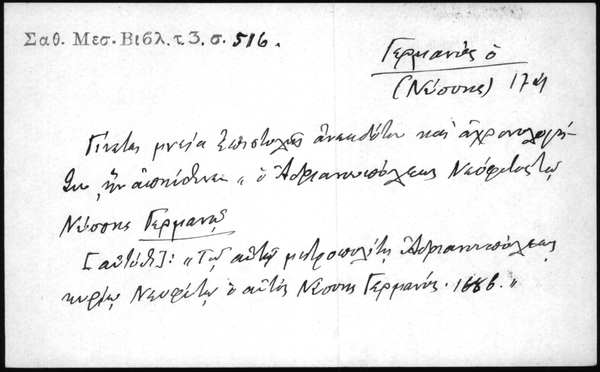 Σαθ. Μεσ. Βιβλ. τ. 3. σ. 516.
Γερμανός ὁ
(Νύσσης) 17
Γίνεται μνεία ἐπιστολῆς ἀνεκδότου καὶ ἀχρονολογή-
του, ἣν ἀπευθύνει „ὁ Ἀδριανουπόλεως Νεόφυτος τῷ
Νύσσης Γερμανῷ
[αὐτόθι]: „Τῷ αὐτῷ μητροπολίτῃ Ἀδριανουπόλεως
κυρίῳ Νεοφύτῳ ὁ αὐτὸς Νύσσης Γερμανός. 1686."